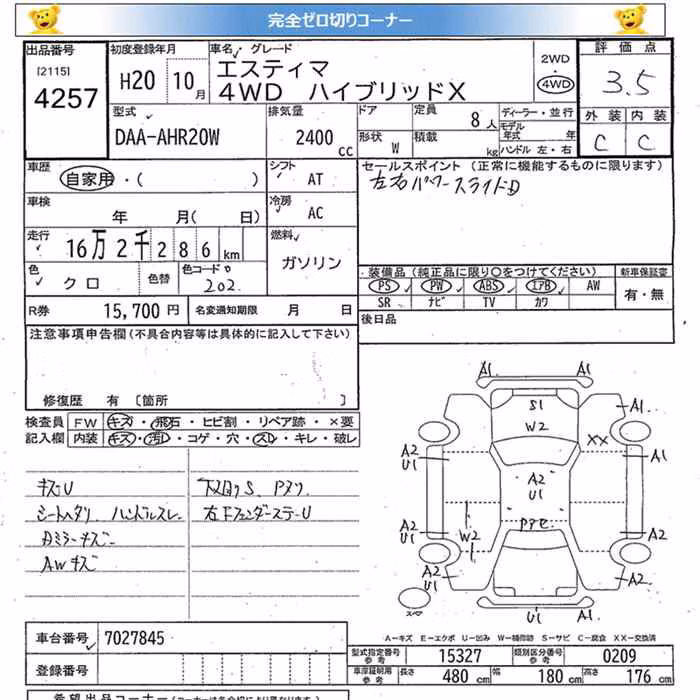 完全ゼロ切りコーナー
出品番号 初度登録年月 車名 グレード 2WD 評価点
[2115] エスティマ ・
4257 H20 10月 4WD ハイブリッドX 4WD 3.5
型式 排気量 ドア 定員 8人 ディーラー・並行 外装 内装
DAA-AHR20W 2400cc 形状 W 積載 kg モデル年式 年 C C
ハンドル 左・右
車歴 シフト セールスポイント (正常に機能するものに限ります)
自家用・( ) AT 左右パワースライドD
車検 冷房
年 月(日) AC
走行 燃料
16万2千286km ガソリン
色 クロ 色替 色コード 202 ・装備品 (純正品に限り○をつけてください) 新車保証書
PS PW ABS エアB AW 有・無
SR ナビ TV カワ
R券 15,700円 名変通知期限 月 日 後日品
注意事項申告欄(不具合内容等は具体的に記入して下さい)
修復歴 有 〔箇所 〕
検査員 FW キズ・飛石・ヒビ割・リペア跡・×要
記入欄 内装 キズ・汚レ・コゲ・穴・スレ・キレ・破レ
キズU
シートヘタリ ハンドルスレ 右Fフェンダーステー U
Dミラーキズ
AWキズ
A1 A1
S1 A1
W2
XX
A2 U1 A1
A2
U1
A2 U1
W2
A2 A2
U1
U1 A1
スペア
A-キズ E-エクボ U-凹み W-補修跡 S-サビ C-腐食 XX-交換済
車台番号 7027845
型式指定番号 参考 15327 類別区分番号 参考 0209
登録番号 車庫証明用 参考 長さ 480cm 幅 180cm 高さ 176cm
希望出品コーナー